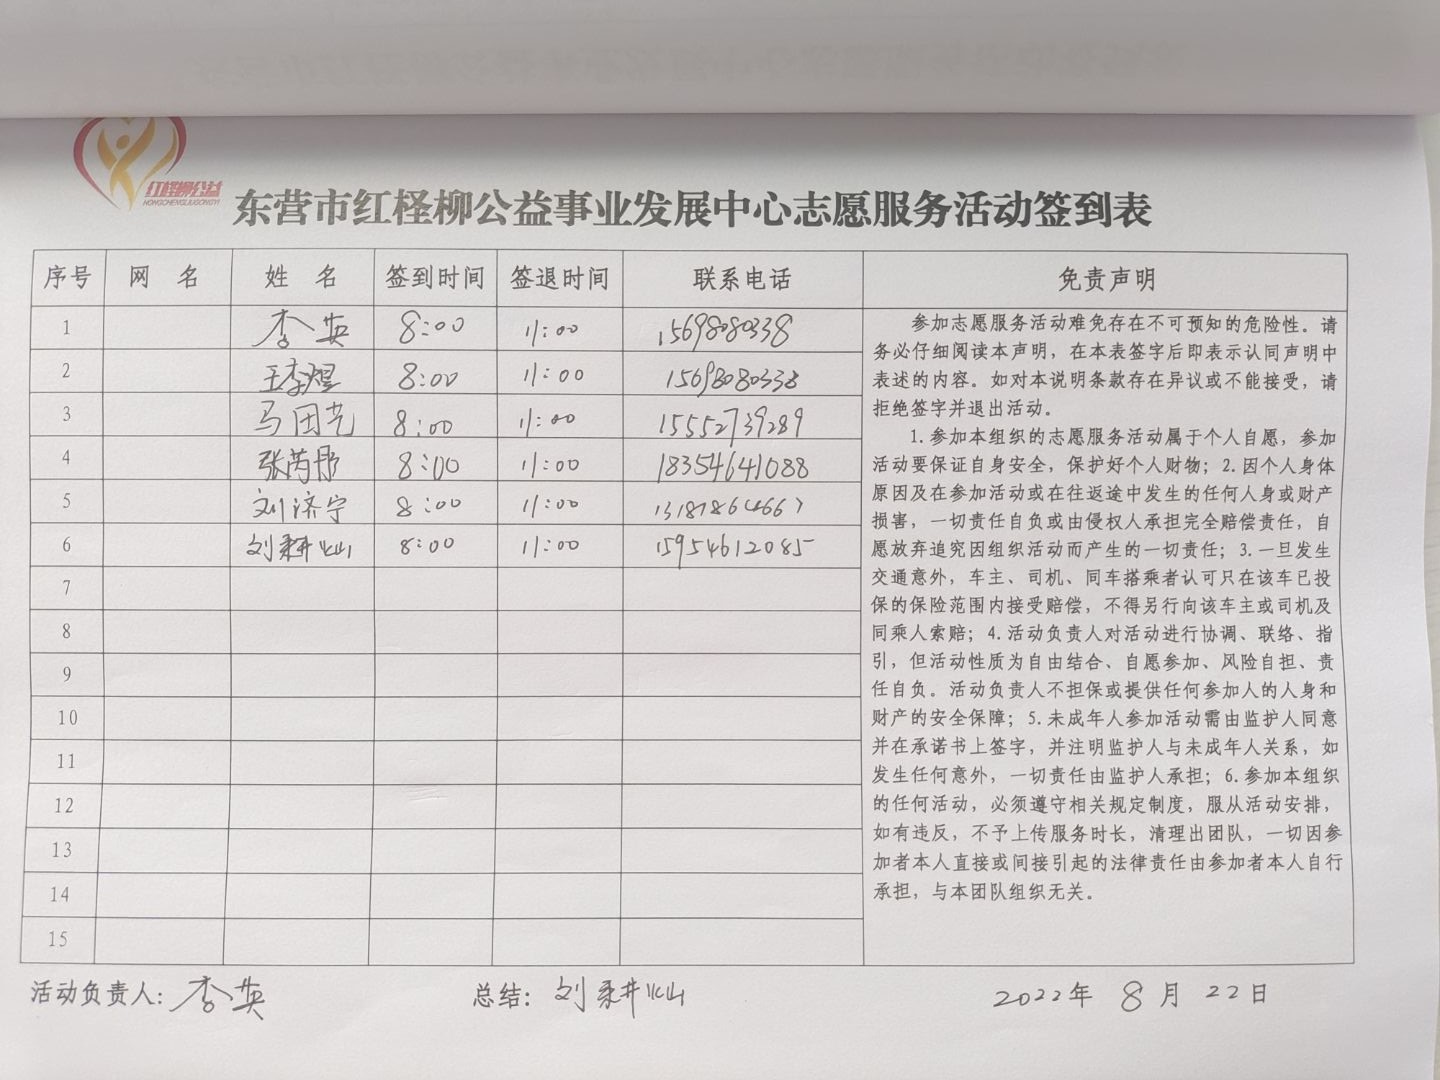 红柽柳公益
HONGCHENGLIUGONGYI
东营市红柽柳公益事业发展中心志愿服务活动签到表
序号 网 名 姓 名 签到时间 签退时间 联系电话 免责声明
1 李英 8:00 11:00 15698080338
2 王李煜 8:00 11:00 15698080338
3 马团艺 8:00 11:00 15552739289
4 张芮彤 8:00 11:00 18354641088
5 刘济宁 8:00 11:00
6 刘 8:00 11:00 15954612085
7
8
9
10
11
12
13
14
15
参加志愿服务活动难免存在不可预知的危险性。请
务必仔细阅读本声明，在本表签字后即表示认同声明中
表述的内容。如对本说明条款存在异议或不能接受，请
拒绝签字并退出活动。
1.参加本组织的志愿服务活动属于个人自愿，参加
活动要保证自身安全，保护好个人财物；2.因个人身体
原因及在参加活动或在往返途中发生的任何人身或财产
损害，一切责任自负或由侵权人承担完全赔偿责任，自
愿放弃追究因组织活动而产生的一切责任；3.一旦发生
交通意外，车主、司机、同车搭乘者认可只在该车已投
保的保险范围内接受赔偿，不得另行向该车主或司机及
同乘人索赔；4.活动负责人对活动进行协调、联络、指
引，但活动性质为自由结合、自愿参加、风险自担、责
任自负。活动负责人不担保或提供任何参加人的人身和
财产的安全保障；5.未成年人参加活动需由监护人同意
并在承诺书上签字，并注明监护人与未成年人关系，如
发生任何意外，一切责任由监护人承担；6.参加本组织
的任何活动，必须遵守相关规定制度，服从活动安排，
如有违反，不予上传服务时长，清理出团队，一切因参
加者本人直接或间接引起的法律责任由参加者本人自行
承担，与本团队组织无关。
活动负责人：李英 总结：刘 2022年 8月 22日